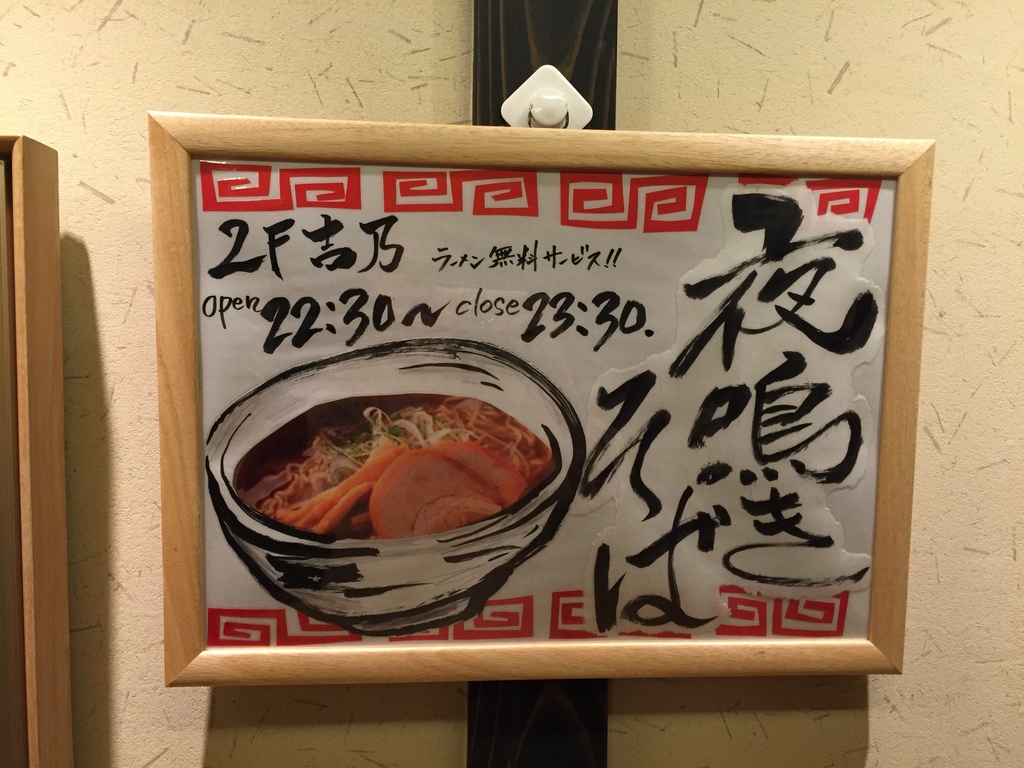 夜鳴き
そば
2F 吉乃 ラーメン無料サービス!!
open 22:30～close 23:30.